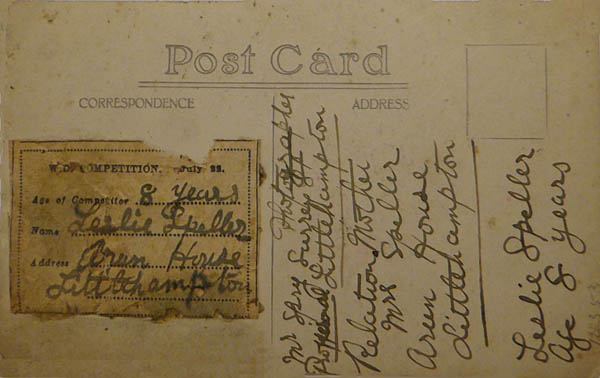 Post Card
CORRESPONDENCE
ADDRESS
W.D. COMPETITION. July 22.
Age of Competitor 8 years
Name Leslie Speller
Address Arun House
Littlehampton
Mr Spry Surrey St Photographer
Professional Littlehampton
Relation Mother
Mrs Speller
Arun House
Littlehampton
Leslie Speller
Age 8 years